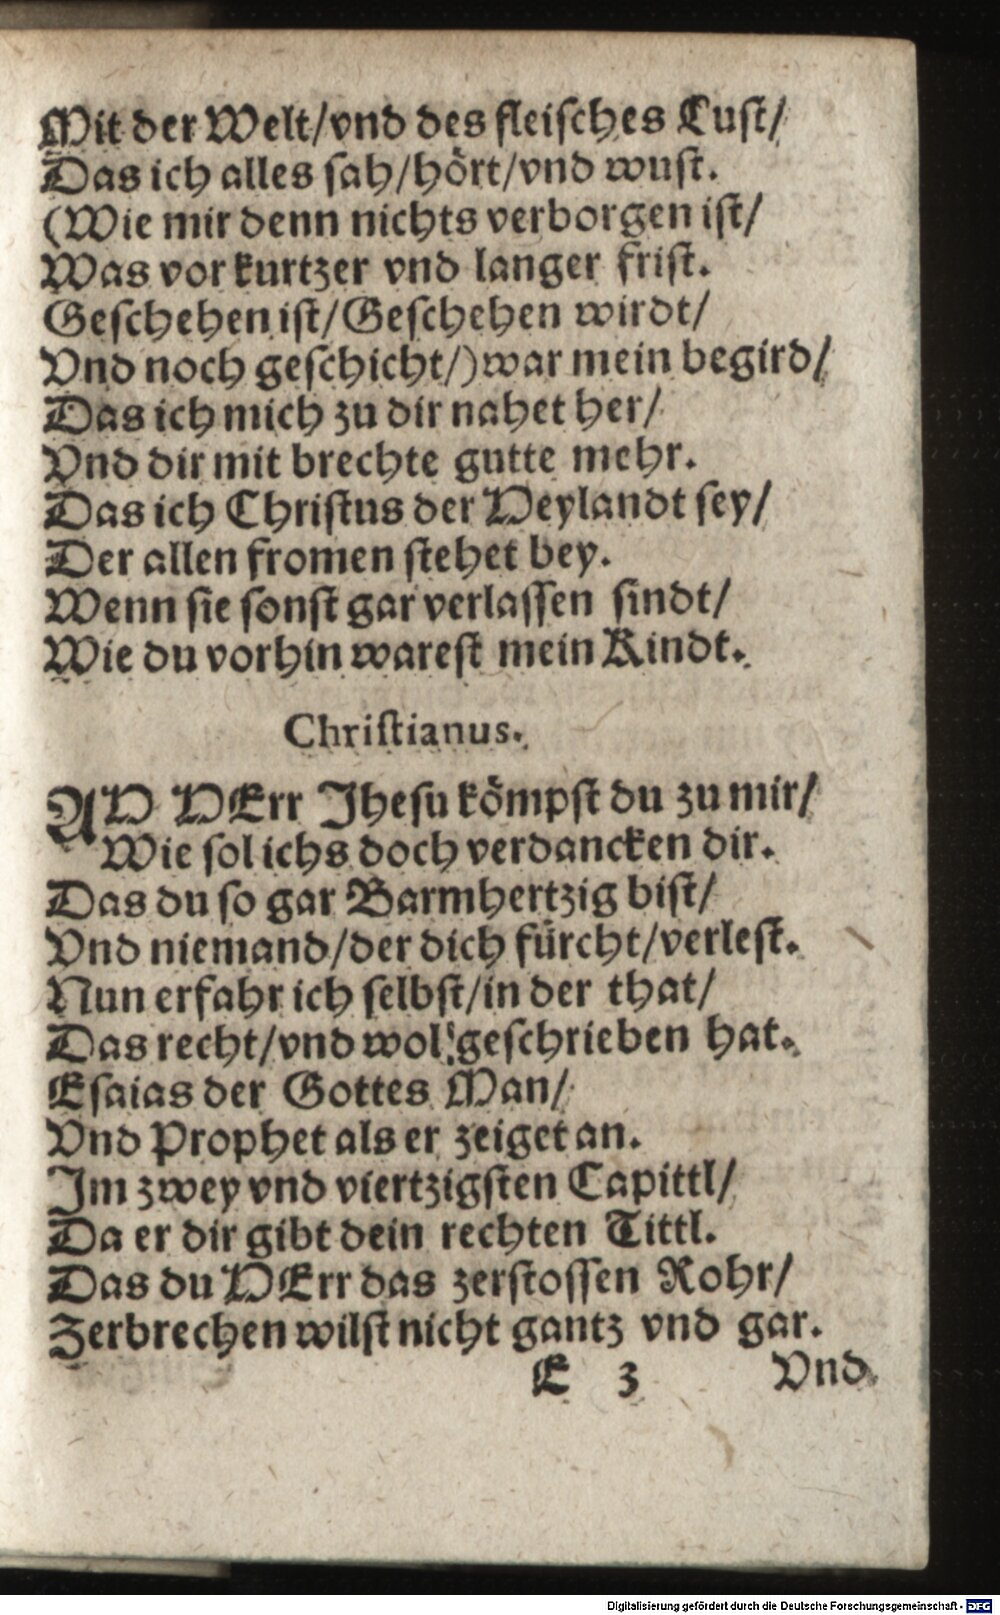 Mit der Welt/vnd des fleisches Lust/
Das ich alles sah/hört/vnd wust.
(Wie mir denn nichts verborgen ist/
Was vor kurtzer vnd langer frist.
Geschehen ist/Geschehen wirdt/
Vnd noch geschicht/)war mein begird/
Das ich mich zu dir nahet her/
Vnd dir mit brechte gutte mehr.
Das ich Christus der Heylandt sey/
Der allen fromen stehet bey.
Wenn sie sonst gar verlassen sindt/
Wie du vorhin warest mein Kindt.
Christianus.
AH HErr Jhesu kömpst du zu mir/
Wie sol ichs doch verdancken dir.
Das du so gar Barmhertzig bist/
Vnd niemand/der dich fürcht/verlest.
Nun erfahr ich selbst/in der that/
Das recht/vnd wol geschrieben hat.
Esaias der Gottes Man/
Vnd Prophet als er zeiget an.
Im zwey vnd viertzigsten Capittl/
Da er dir gibt dein rechten Tittl.
Das du HErr das zerstossen Rohr/
Zerbrechen wilst nicht gantz vnd gar.
E 3 Vnd
Digitalisierung gefördert durch die Deutsche Forschungsgemeinschaft - DFG